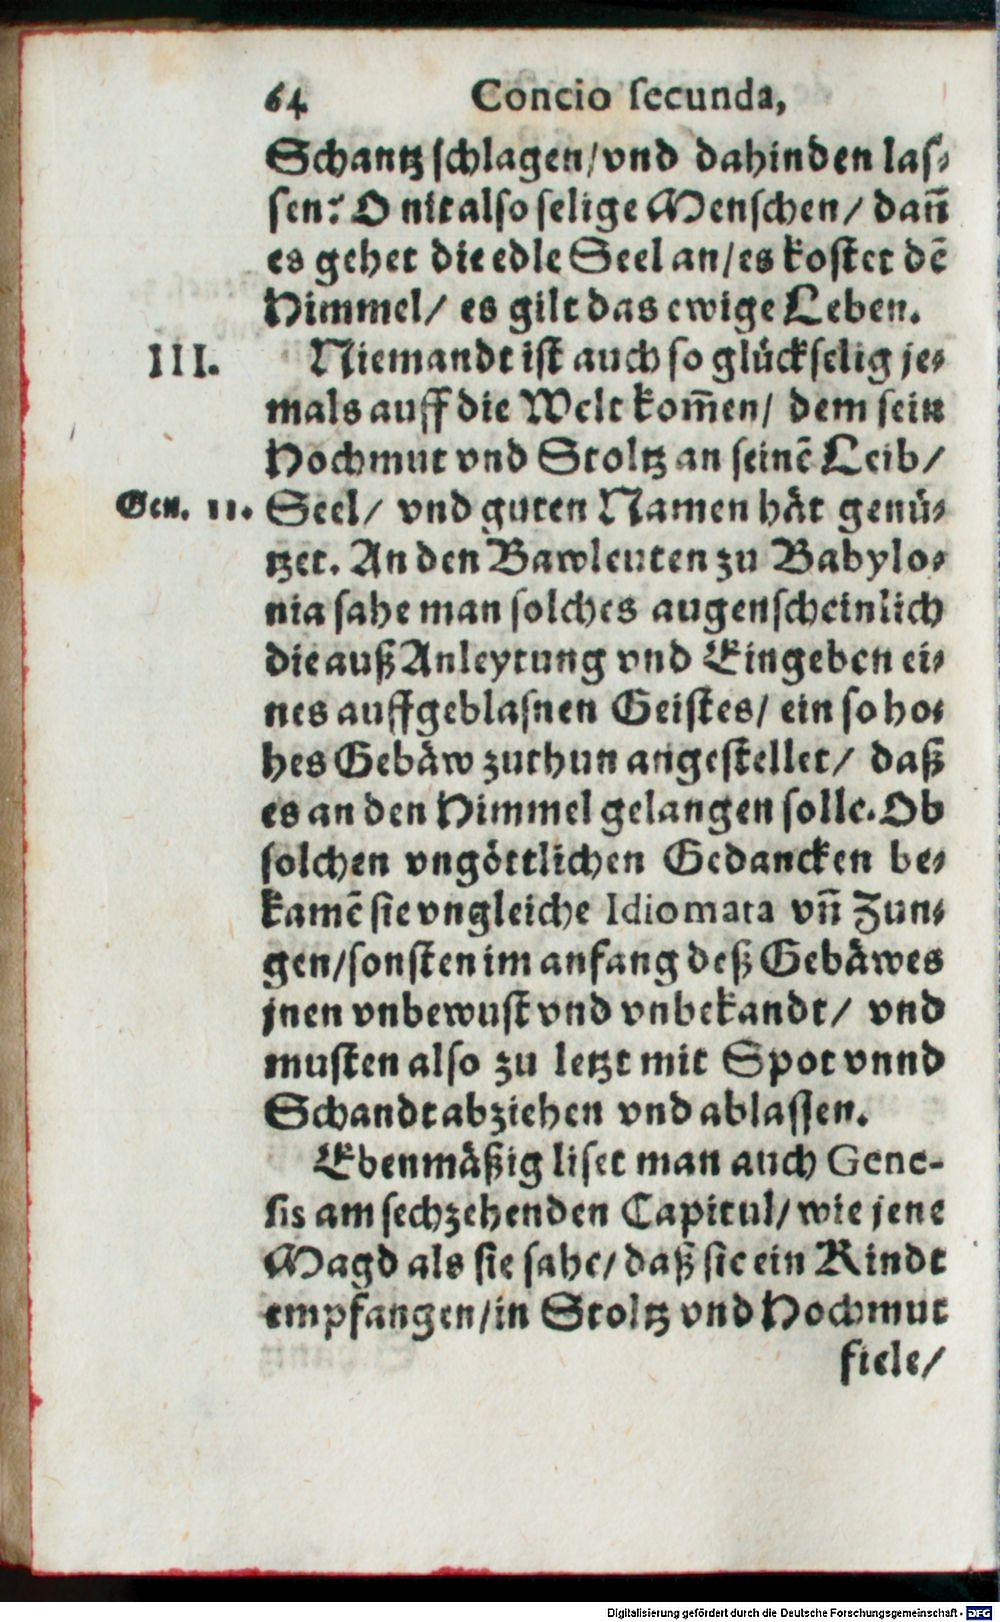 64 Concio secunda,
Schantz schlagen/ vnd dahinden las-
sen? O nit also selige Menschen/ dañ
es gehet die edle Seel an/ es kostet dē
Himmel/ es gilt das ewige Leben.
III. Niemandt ist auch so glückselig je-
mals auff die Welt kom̄en/ dem sein
Hochmut vnd Stoltz an seinē Leib/
Gen. 11. Seel/ vnd guten Namen hât genü-
tzet. An den Bawleuten zu Babylo-
nia sahe man solches augenscheinlich
die auß Anleytung vnd Eingeben ei-
nes auffgeblasnen Geistes/ ein so ho-
hes Gebäw zuthun angestellet/ daß
es an den Himmel gelangen solle. Ob
solchen vngöttlichen Gedancken be-
kamē sie vngleiche Idiomata vñ Zun-
gen/ sonsten im anfang deß Gebäwes
jnen vnbewust vnd vnbekandt/ vnd
musten also zu letzt mit Spot vnnd
Schandt abziehen vnd ablassen.
Ebenmäßig liset man auch Gene-
sis am sechzehenden Capitul/ wie jene
Magd als sie sahe/ daß sie ein Kindt
empfangen/ in Stoltz vnd Hochmut
fiele/
Digitalisierung gefördert durch die Deutsche Forschungsgemeinschaft - DFG